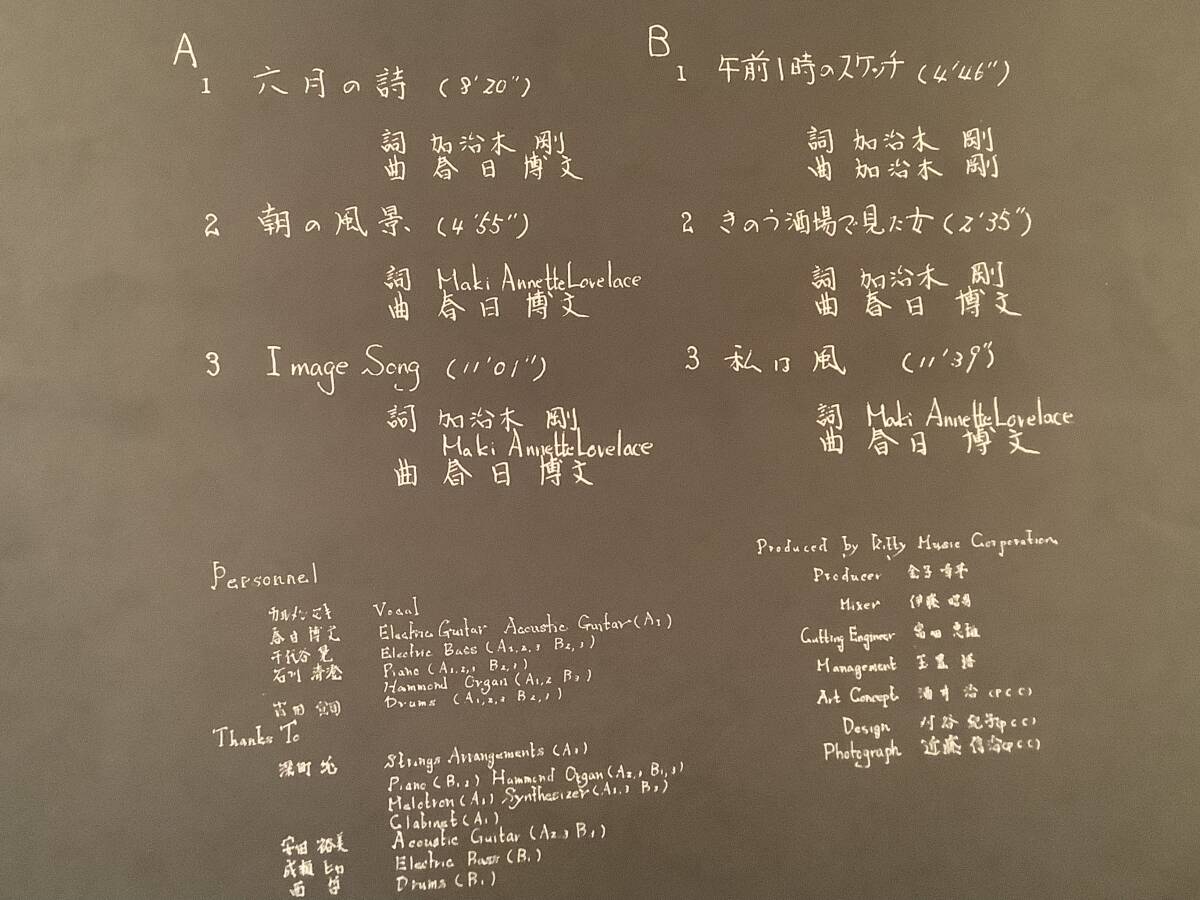 A
1 六月の詩 (8'20")
詞 加治木 剛
曲 春日 博文
2 朝の風景 (4'55")
詞 Maki Annette Lovelace
曲 春日 博文
3 Image Song (11'01")
詞 加治木 剛
Maki Annette Lovelace
曲 春日 博文
B
1 午前1時のスケッチ (4'46")
詞 加治木 剛
曲 加治木 剛
2 きのう酒場で見た女 (2'35")
詞 加治木 剛
曲 春日 博文
3 私は風 (11'39")
詞 Maki Annette Lovelace
曲 春日 博文
Personnel
カルメン マキ Vocal
春日 博文 Electric Guitar Acoustic Guitar (A1)
千代谷 晃 Electric Bass (A1,2,3 B2,3)
石川 清澄 Piano (A1,2,3 B2,3)
Hammond Organ (A1,2 B3)
吉田 宣司 Drums (A1,2,3 B2,3)
Thanks To
深町 純 Strings Arrangements (A1)
Piano (B1,2) Hammond Organ (A2,3 B1,3)
Melotron (A1) Synthesizer (A1,3 B3)
Clabinet (A1)
安田 裕美 Acoustic Guitar (A2,3 B1)
成瀬 ヒロ Electric Bass (B1)
西 哲 Drums (B1)
Produced by Kitty Music Corporation
Producer 金子 章平
Mixer 伊藤
Cutting Engineer
Management
Art Concept 酒井 治 (PCC)
Design 村谷 紀子 (PCC)
Photograph 近藤 信治 (PCC)